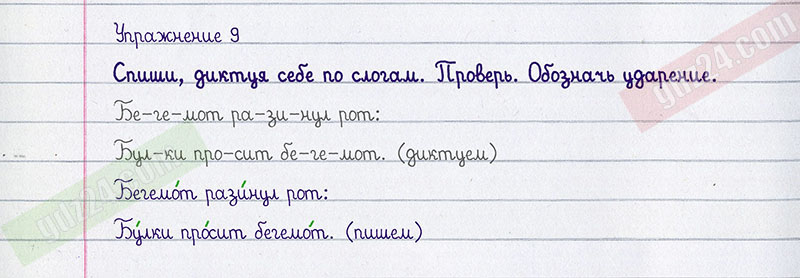 Упражнение 9
Спиши, диктуя себе по слогам. Проверь. Обозначь ударение.
Бе-ге-мот ра-зи-нул рот:
Бул-ки про-сит бе-ге-мот. (диктуем)
Бегемо́т рази́нул рот:
Бу́лки про́сит бегемо́т. (пишем)
gdz24.com
gdz24.com